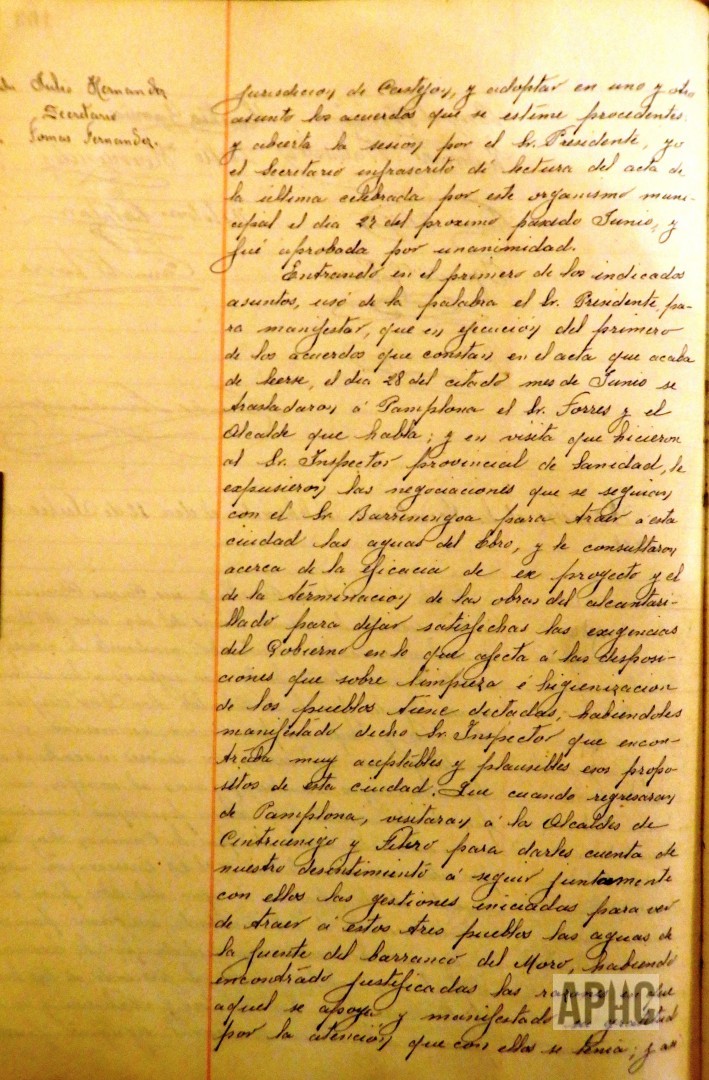 Julio Hernandez
Secretario
Tomas Fernandez.
jurisdiccion de Castejon, y adoptar en uno y otro
asunto los acuerdos que se estime procedentes,
y abierta la sesion por el Sr. Presidente, yo
el Secretario infrascrito dí lectura del acta de
la última celebrada por este organismo muni-
cipal el dia 27 del proximo pasado Junio, y
fué aprobada por unanimidad.
Entrando en el primero de los indicados
asuntos, usó de la palabra el Sr. Presidente, pa-
ra manifestar, que en ejecucion del primero
de los acuerdos que constan en el acta que acaba
de leerse, el dia 28 del citado mes de Junio se
trasladaron á Pamplona el Sr. Torres y el
Alcalde que habla; y en visita que hicieron
al Sr. Inspector provincial de Sanidad, le
expusieron las negociaciones que se seguian
con el Sr. Barrinengoa para traer á esta
ciudad las aguas del Ebro, y le consultaron
acerca de la eficacia de ex proyecto y el
de la terminacion de las obras del alcantari-
llado para dejar satisfechas las exigencias
del Gobierno en lo que afecta á las disposi-
ciones que sobre limpieza é higienizacion
de los pueblos tiene dictadas, habiendoles
manifestado dicho Sr. Inspector que encon-
traba muy aceptables y plausibles esos propo-
sitos de esta ciudad. Que cuando regresaron
de Pamplona, visitaron á los Alcaldes de
Cintruenigo y Fitero para darles cuenta de
nuestro desentimiento á seguir juntamente
con ellos las gestiones iniciadas para ver
de traer á estos tres pueblos las aguas de
la fuente del barranco del Moro, habiendo
encontrado justificadas las razones en que
aquel se apoya y manifestado su gratitud
por la atencion que con ellos se tenia; y
APHC